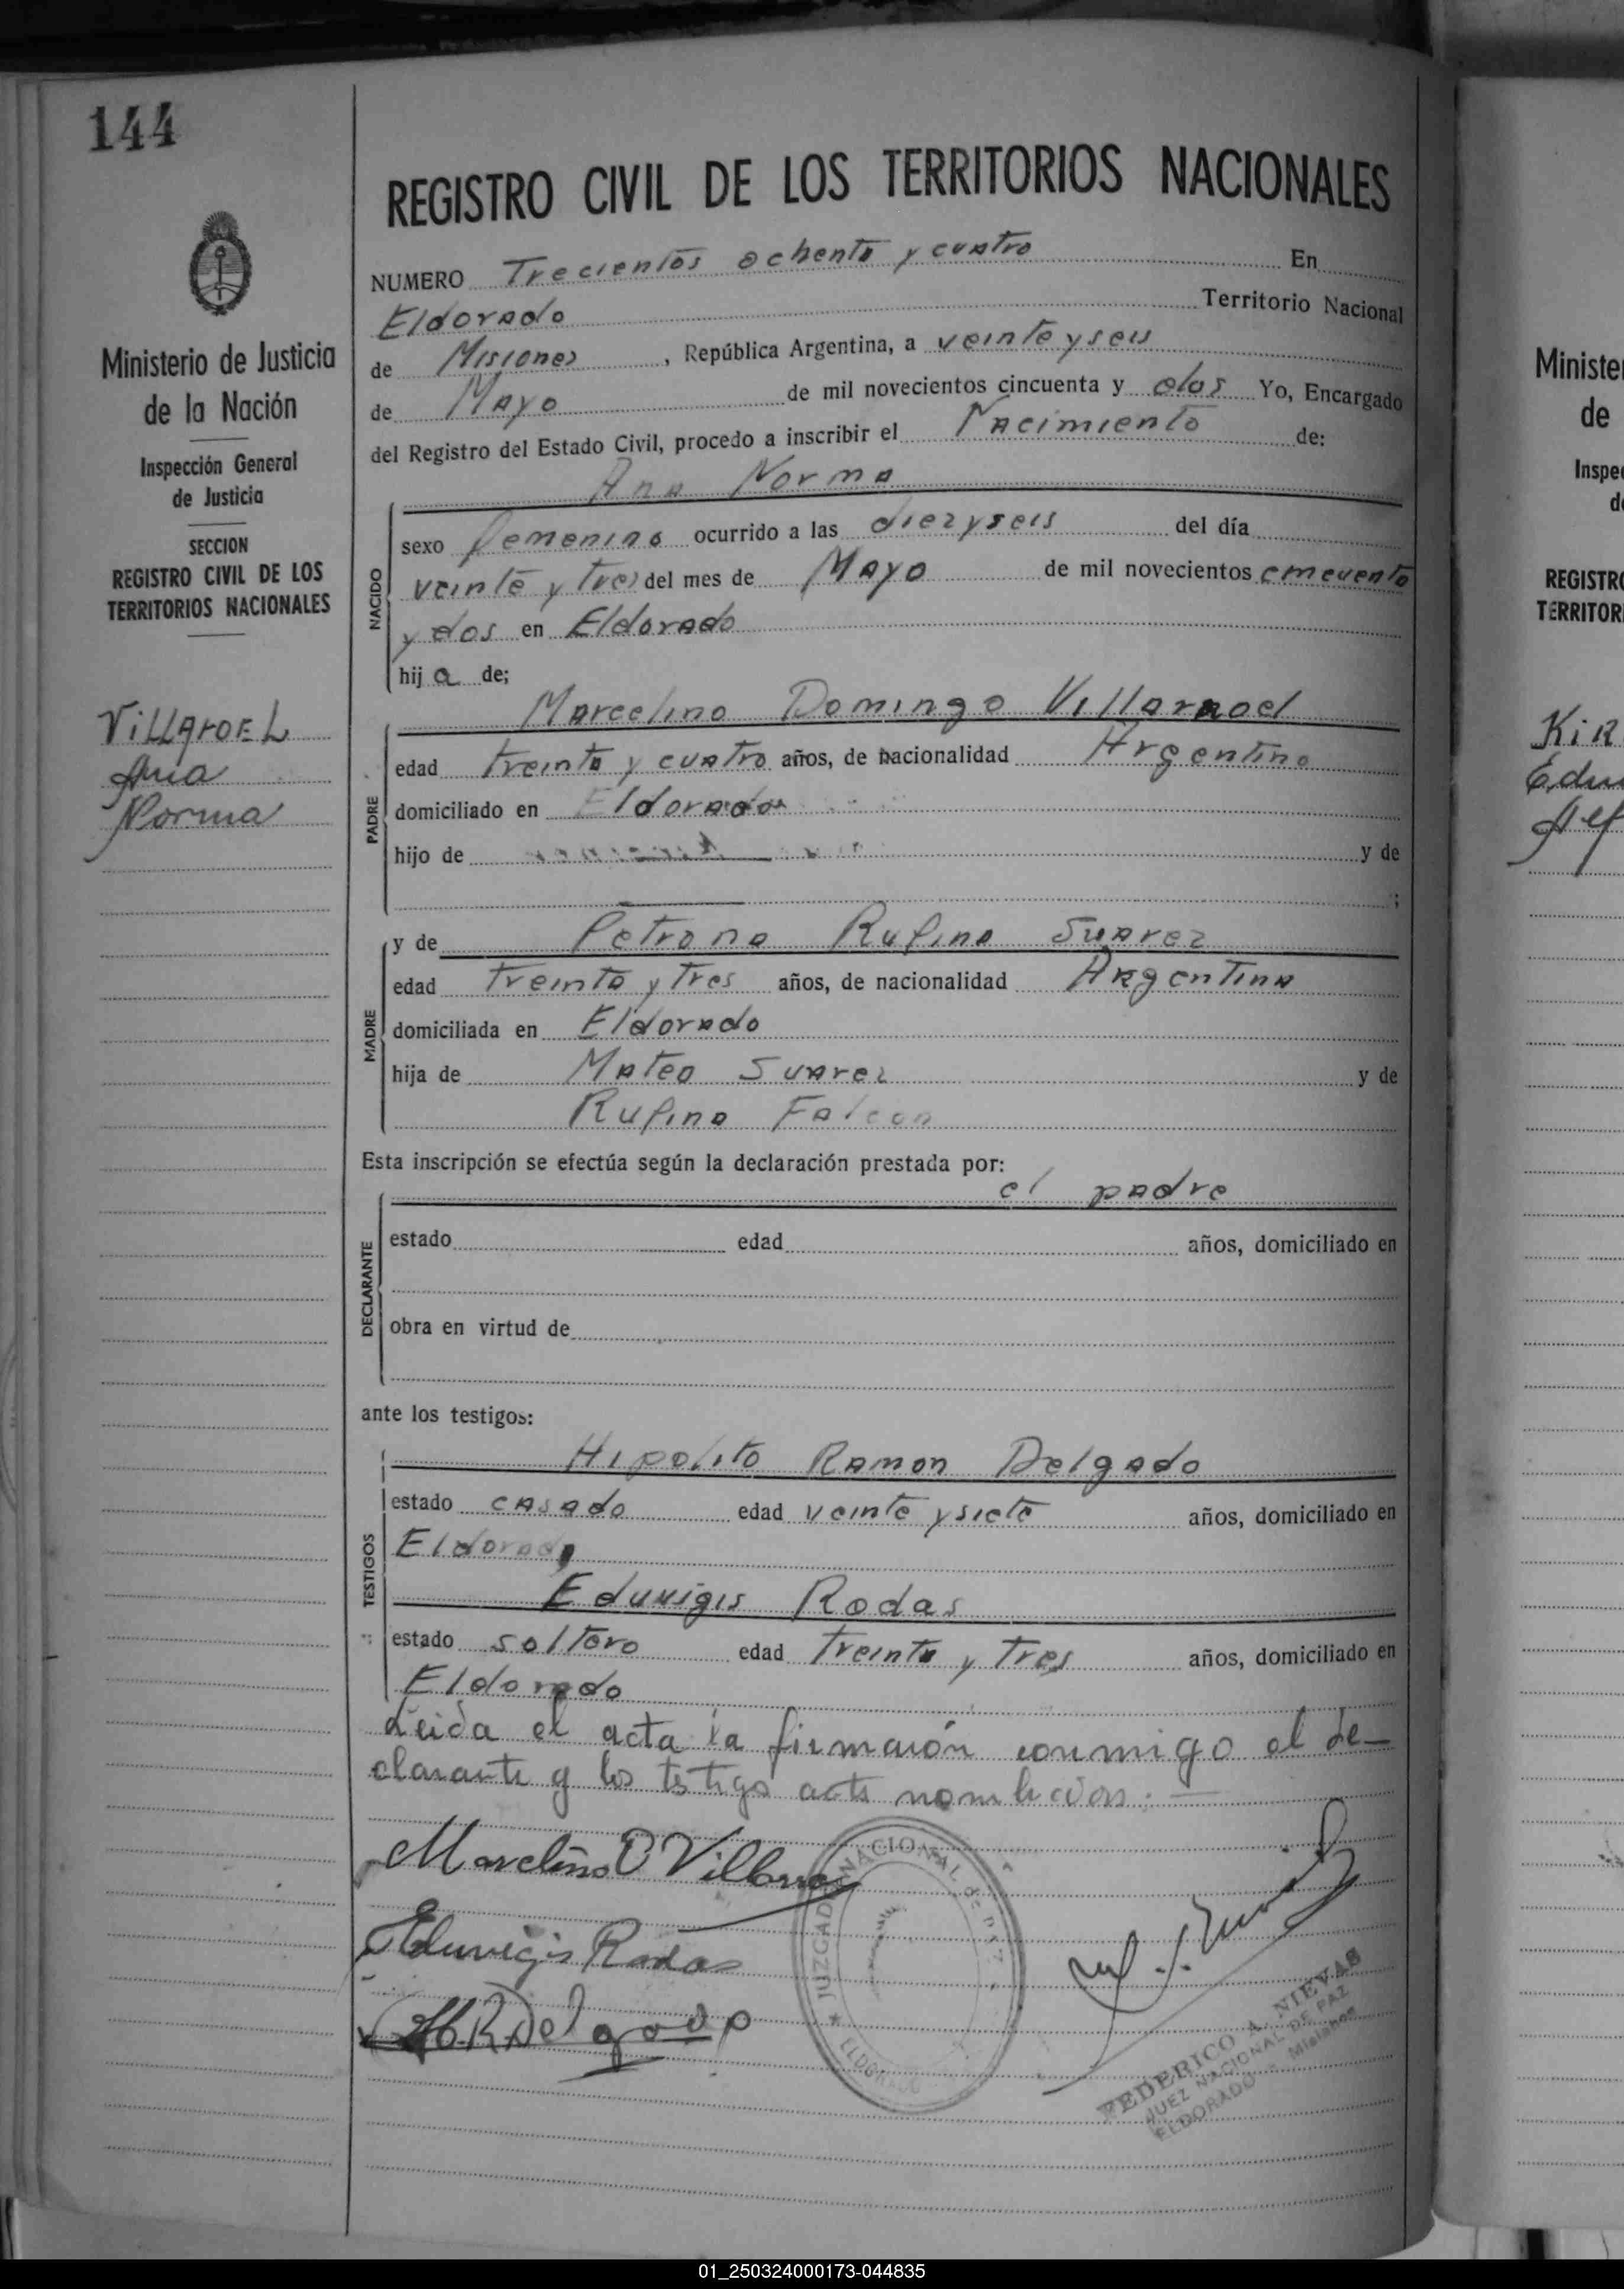 144
Ministerio de Justicia
de la Nación
Inspección General
de Justicia
SECCION
REGISTRO CIVIL DE LOS
TERRITORIOS NACIONALES
VILLAroEL
Ana
Norma
REGISTRO CIVIL DE LOS TERRITORIOS NACIONALES
NUMERO Trecientos ochenta y cuatro En
Eldorado Territorio Nacional
de Misiones, República Argentina, a veinte y seis
de Mayo de mil novecientos cincuenta y dos Yo, Encargado
del Registro del Estado Civil, procedo a inscribir el Nacimiento de:
Ana Norma
NACIDO
sexo femenino ocurrido a las diez y seis del día
veinte y tres del mes de Mayo de mil novecientos cincuenta
y dos en Eldorado
hija de;
Marcelino Domingo Villarroel
PADRE
edad treinta y cuatro años, de nacionalidad Argentino
domiciliado en Eldorado
hijo de y de
;
MADRE
y de Petrona Rufina Suarez
edad treinta y tres años, de nacionalidad Argentina
domiciliada en Eldorado
hija de Mateo Suarez y de
Rufina Falcon
Esta inscripción se efectúa según la declaración prestada por:
el padre
DECLARANTE
estado edad años, domiciliado en
obra en virtud de
ante los testigos:
TESTIGOS
Hipolito Ramon Delgado
estado casado edad veinte y siete años, domiciliado en
Eldorado
Eduvigis Rodas
estado soltero edad treinta y tres años, domiciliado en
Eldorado
Leida el acta la firmaron conmigo el de-
clarante y los testigo
Marcelino D Villarroel
Eduvigis Rodas
H.R Delgado
JUZGADO NACIONAL de PAZ
ELDORADO
FEDERICO A. NIEVAS
JUEZ NACIONAL DE PAZ
ELDORADO - Misiones
Minister
de
Inspe
d
REGISTR
TERRITOR
Kir
Edu
Alf
01_250324000173-044835